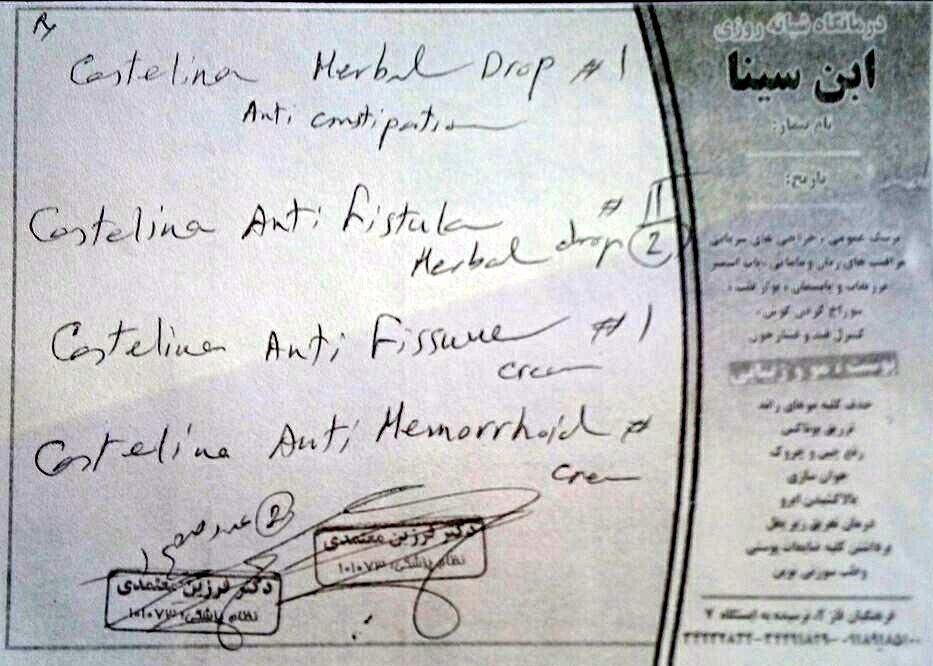 Rx
Castelina Herbal Drop # 1
Anti constipation
Castelina Anti Fistula # II
Herbal drop 2
Castelina Anti Fissure # 1
cream
Castelina Anti Hemorrhoid #
cream
2 عدد
دکتر فرزین معتمدی
نظام پزشکی:
دکتر فرزین معتمدی
نظام پزشکی:
درمانگاه شبانه روزی
ابن سینا
نام بیمار:
تاریخ:
پزشک عمومی ، جراحی های سرپایی
مراقبت های زنان و مامایی ، پاپ اسمیر
تزریقات و پانسمان ، نوار قلب ،
سوراخ کردن گوش ،
کنترل قند و فشار خون
پوست، مو و زیبایی
حذف کلیه موهای زائد
تزریق بوتاکس
رفع چین و چروک
جوان سازی
بالا کشیدن ابرو
درمان تعریق زیر بغل
برداشتن کلیه ضایعات پوستی
فرهنگیان فاز ۲، نرسیده به ایستگاه ۷